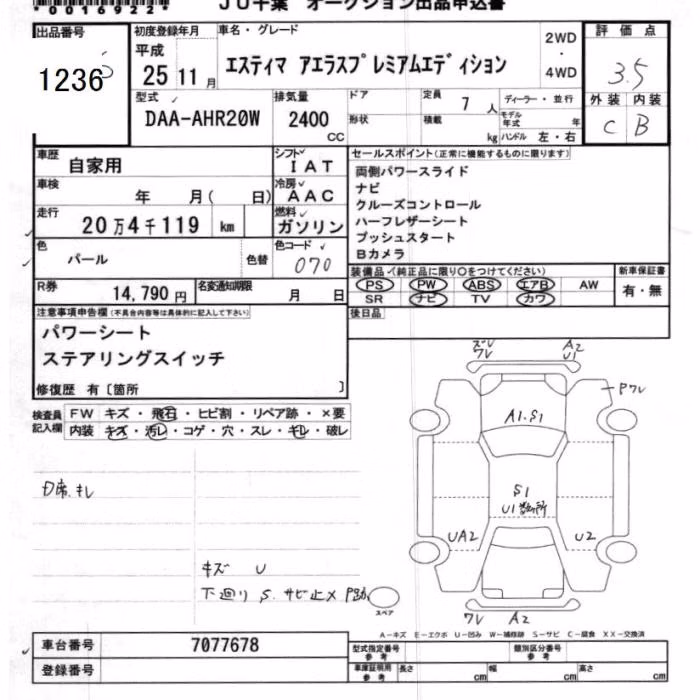 *0016922*
JU千葉 オークション出品申込書
出品番号
1236
初度登録年月
平成
25 11月
車名・グレード
エスティマ アエラスプレミアムエディション
2WD
・
4WD
評価点
3.5
外装 内装
C B
型式
DAA-AHR20W
排気量
2400
CC
ドア
定員 7 人
形状
積載 kg
ディーラー・並行
モデル年式 年
ハンドル 左・右
車歴 自家用
車検 年 月( 日)
走行 20万4千119 km
色 パール 色替
R券 14,790円
名変通知期限 月 日
シフト IAT
冷房 AAC
燃料 ガソリン
色コード 070
セールスポイント(正常に機能するものに限ります)
両側パワースライド
ナビ
クルーズコントロール
ハーフレザーシート
プッシュスタート
Bカメラ
装備品(純正品に限り○をつけてください)
PS PW ABS エアB AW
SR ナビ TV カワ
新車保証書
有・無
後日品
注意事項申告欄(不具合内容等は具体的に記入して下さい)
パワーシート
ステアリングスイッチ
修復歴 有〔箇所 〕
検査員記入欄
FW キズ・飛石・ヒビ割・リペア跡・×要
内装 キズ・汚レ・コゲ・穴・スレ・キレ・破レ
キレ
キズ U
下廻り S. サビ止×
ズレ
ワレ
A2
U1
Pワレ
A1.S1
S1
U1
UA2
U2
ワレ
A2
スペア
A-キズ E-エクボ U-凹み W-補修跡 S-サビ C-腐食 XX-交換済
車台番号 7077678
登録番号
型式指定番号
参考
類別区分番号
参考
車庫証明用
参考
長さ cm
幅 cm
高さ cm